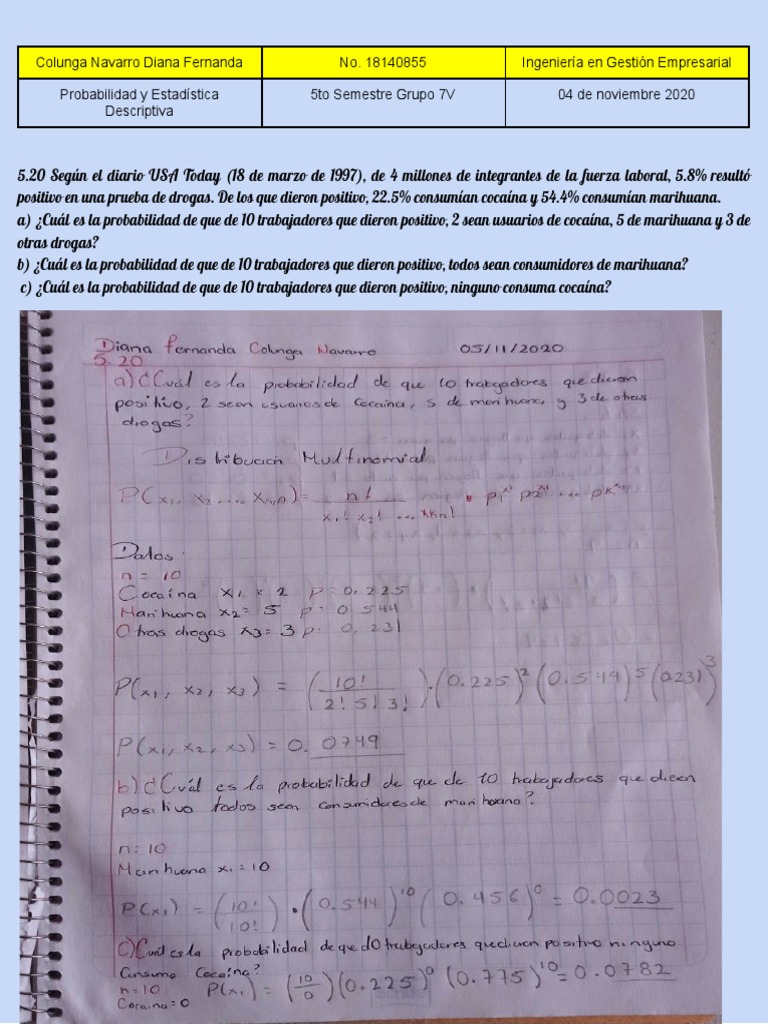 Colunga Navarro Diana Fernanda No. 18140855 Ingeniería en Gestión Empresarial
Probabilidad y Estadística Descriptiva 5to Semestre Grupo 7V 04 de noviembre 2020
5.20 Según el diario USA Today (18 de marzo de 1997), de 4 millones de integrantes de la fuerza laboral, 5.8% resultó
positivo en una prueba de drogas. De los que dieron positivo, 22.5% consumían cocaína y 54.4% consumían marihuana.
a) ¿Cuál es la probabilidad de que de 10 trabajadores que dieron positivo, 2 sean usuarios de cocaína, 5 de marihuana y 3 de
otras drogas?
b) ¿Cuál es la probabilidad de que de 10 trabajadores que dieron positivo, todos sean consumidores de marihuana?
c) ¿Cuál es la probabilidad de que de 10 trabajadores que dieron positivo, ninguno consuma cocaína?
Diana Fernanda Colunga Navarro 05/11/2020
5.20
a) ¿Cuál es la probabilidad de que 10 trabajadores que dieron
positivo, 2 sean usuarios de cocaina, 5 de marihuana, y 3 de otras
drogas?
Distribución Multinomial
P(x₁, x₂ ... xₖ,n) = n! / x₁! x₂! ... xₖn! • p₁ˣ¹ p₂ˣ² ... pₖˣᵏ
Datos:
n = 10
Cocaína x₁ = 2 p = 0.225
Marihuana x₂ = 5 p = 0.544
Otras drogas x₃ = 3 p: 0.231
P(x₁, x₂, x₃) = (10! / 2! 5! 3!) · (0.225)² (0.544)⁵ (0.231)³
P(x₁, x₂, x₃) = 0.0749
b) ¿Cuál es la probabilidad de que de 10 trabajadores que dieron
positivo todos sean consumidores de marihuana?
n = 10
Marihuana x₁ = 10
P(x₁) = (10! / 10!) • (0.544)¹⁰ (0.456)⁰ = 0.0023
c) Cuál es la probabilidad de que 10 trabajadores que dieron positivo ninguno
Consuma Cocaína?
n = 10 P(x₁) = (10/0) (0.225)⁰ (0.775)¹⁰ = 0.0782
Cocaina = 0